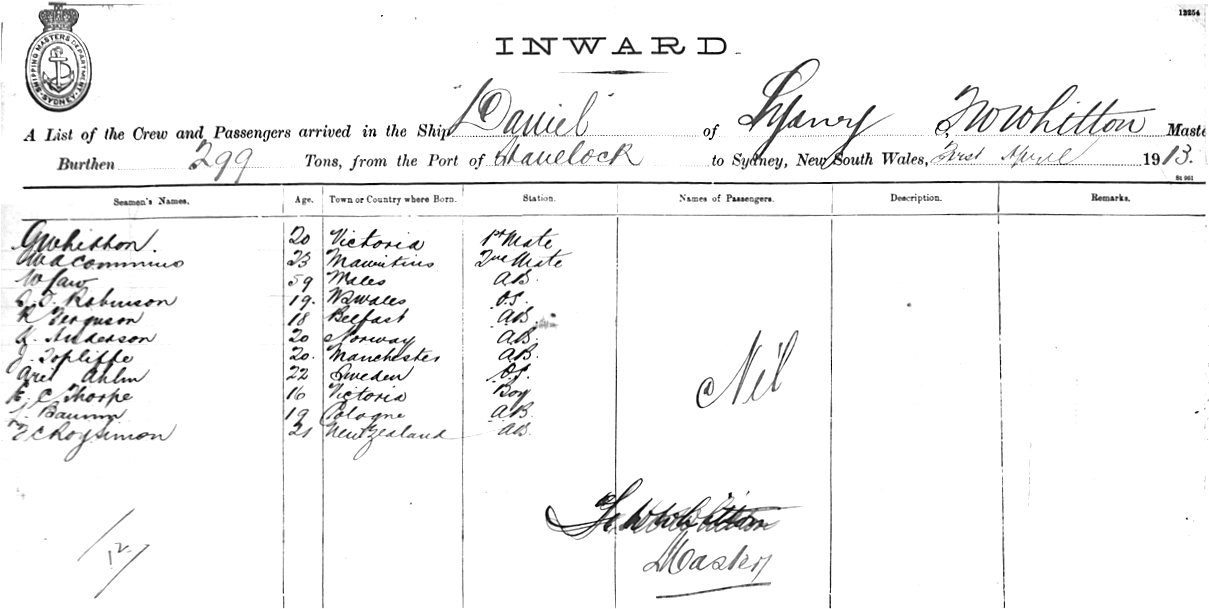 13254
SHIPPING MASTERS DEPARTMENT SYDNEY
INWARD.
A List of the Crew and Passengers arrived in the Ship "Daniel" of Sydney F W Whitton Maste
Burthen 299 Tons, from the Port of Havelock to Sydney, New South Wales, First April 1913.
St 961
Seamen's Names. Age. Town or Country where Born. Station. Names of Passengers. Description. Remarks.
G Whitton. 20 Victoria 1st Mate
23 Mauritius 2nd Mate
W Law 59 Wales A.B.
Robinson 19. N.S.Wales O.S.
R Ferguson 18 Belfast A.B.
Anderson 20 Norway A.B.
J. Topliffe 20. Manchester A.B.
Ahlm 22 Sweden O.S.
E. C Thorpe 16 Victoria Boy
19 Cologne A.B.
21 New Zealand A.B.
Nil
F W Whitton
Master
12